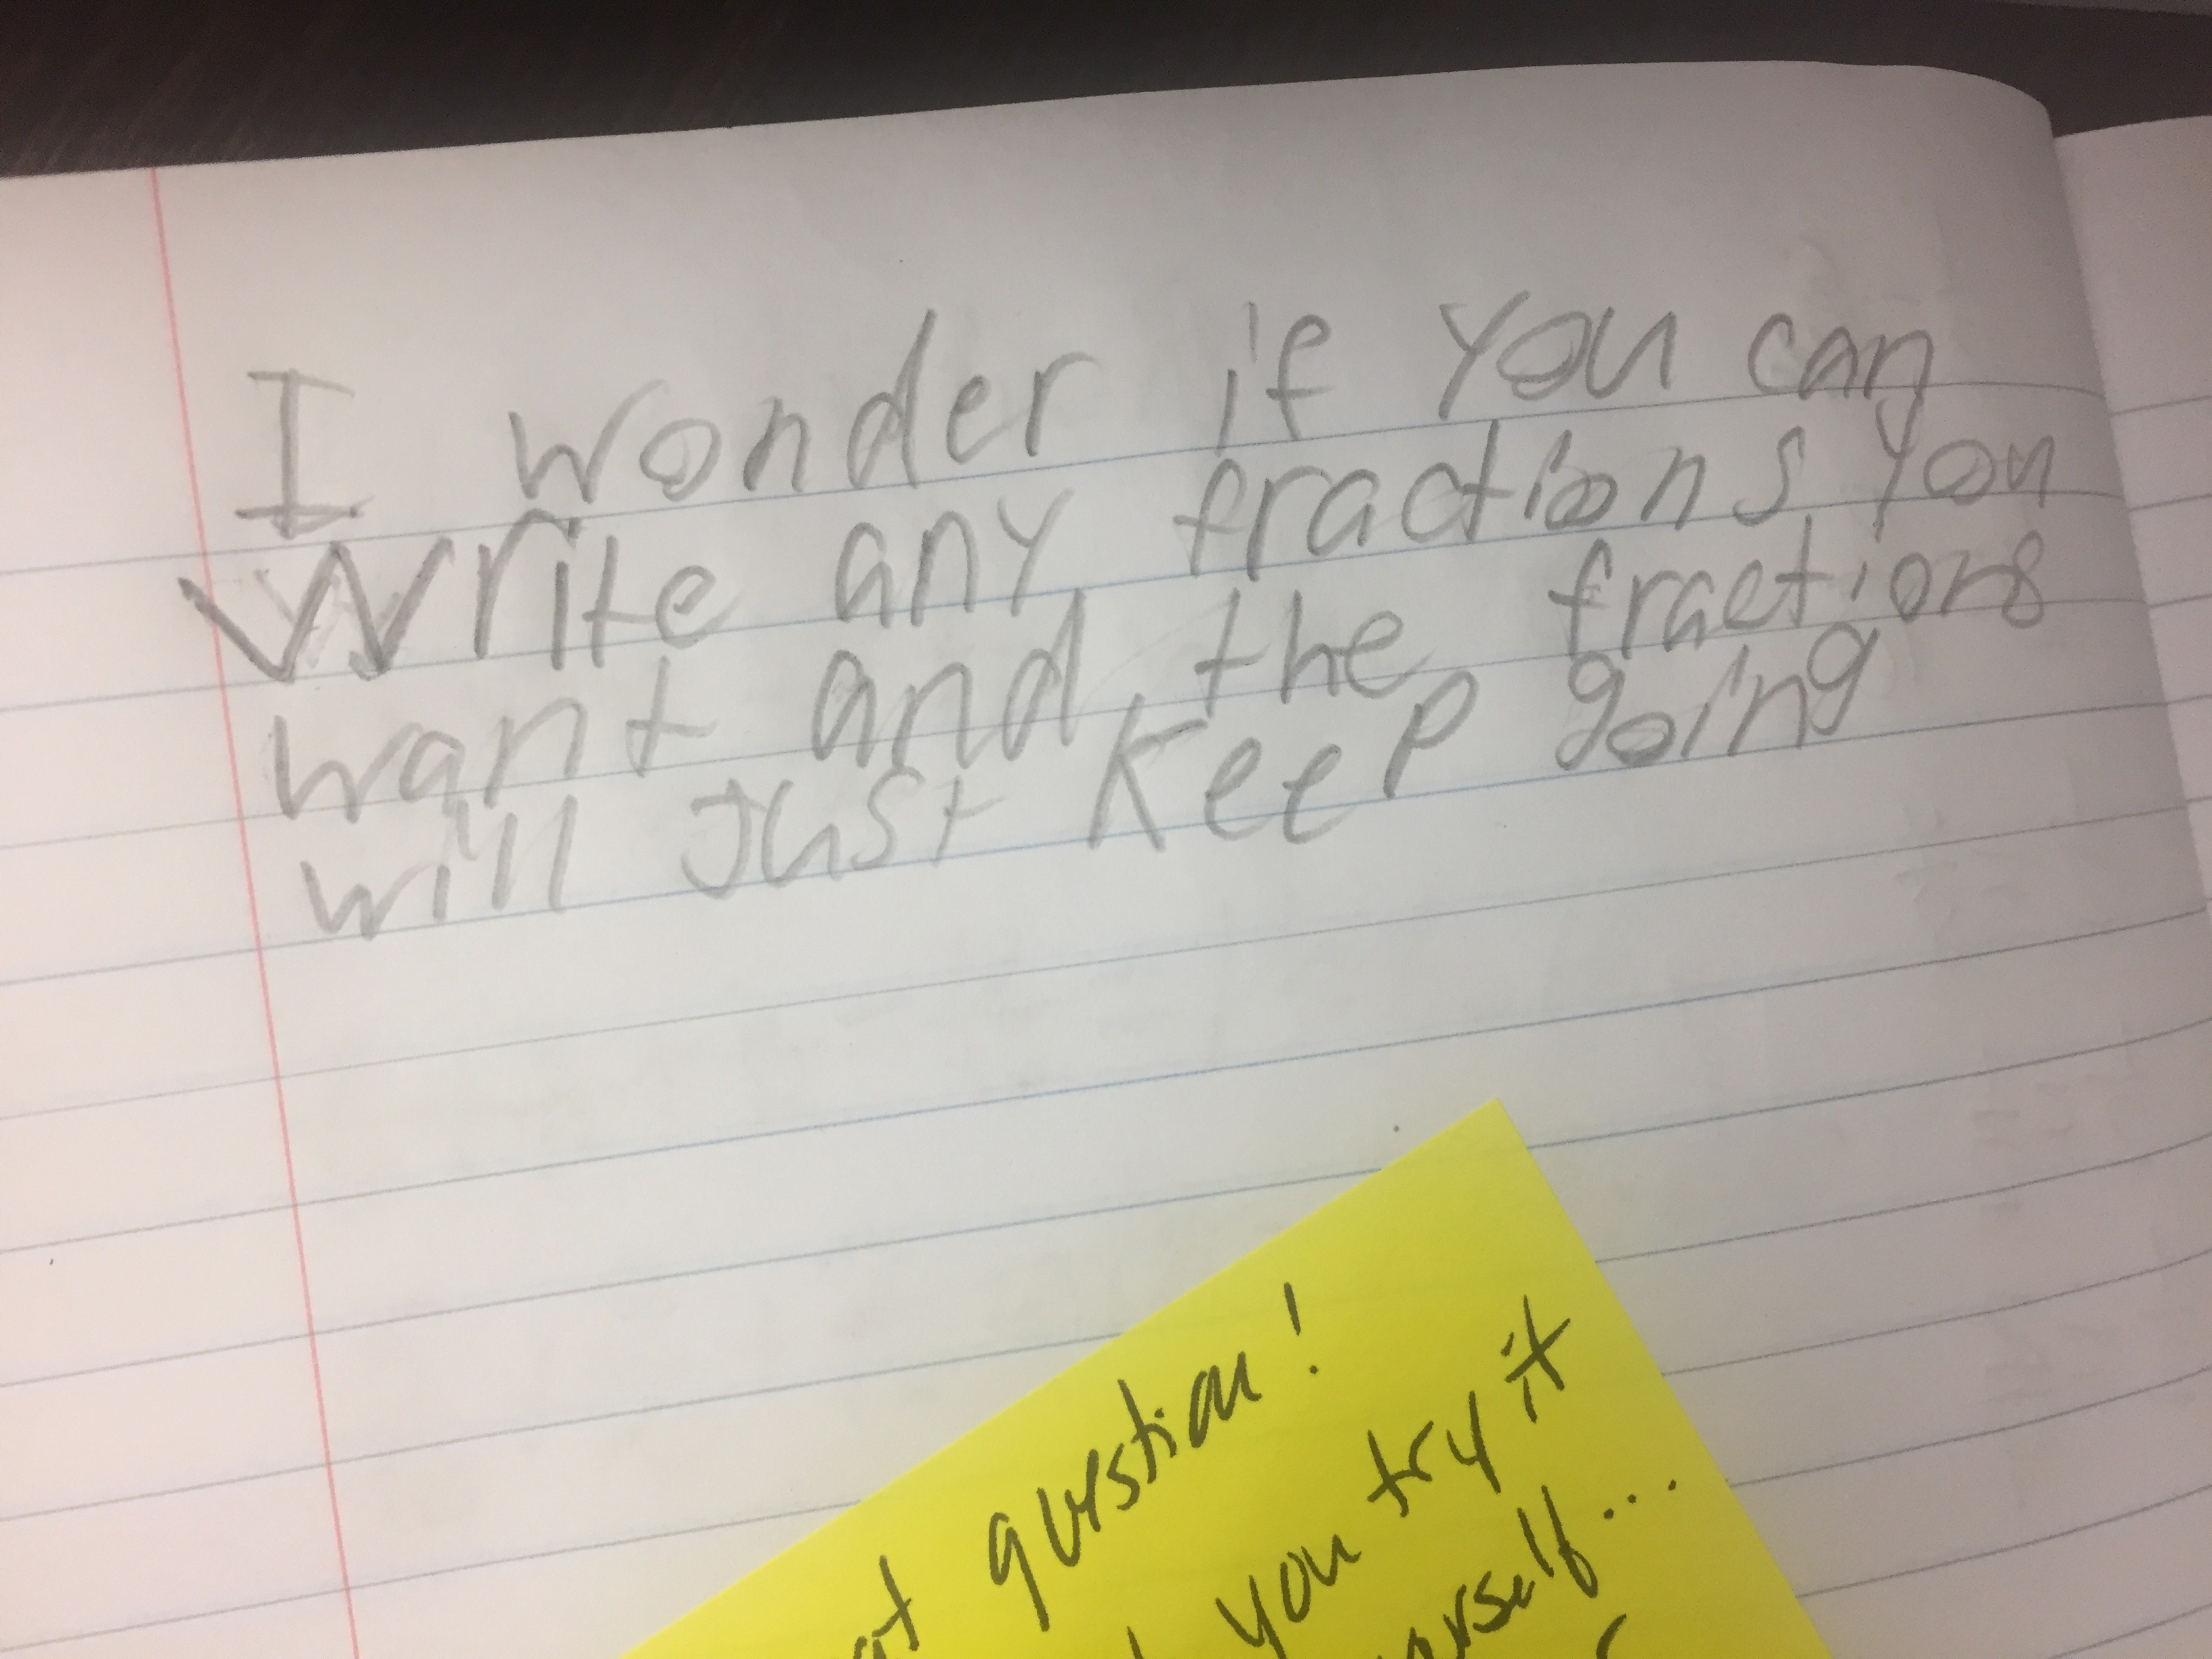 I wonder if you can
Write any fractions you
want and the fractions
will Just Keep going
question!
you try it